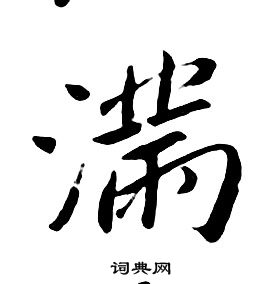 滿
词典网